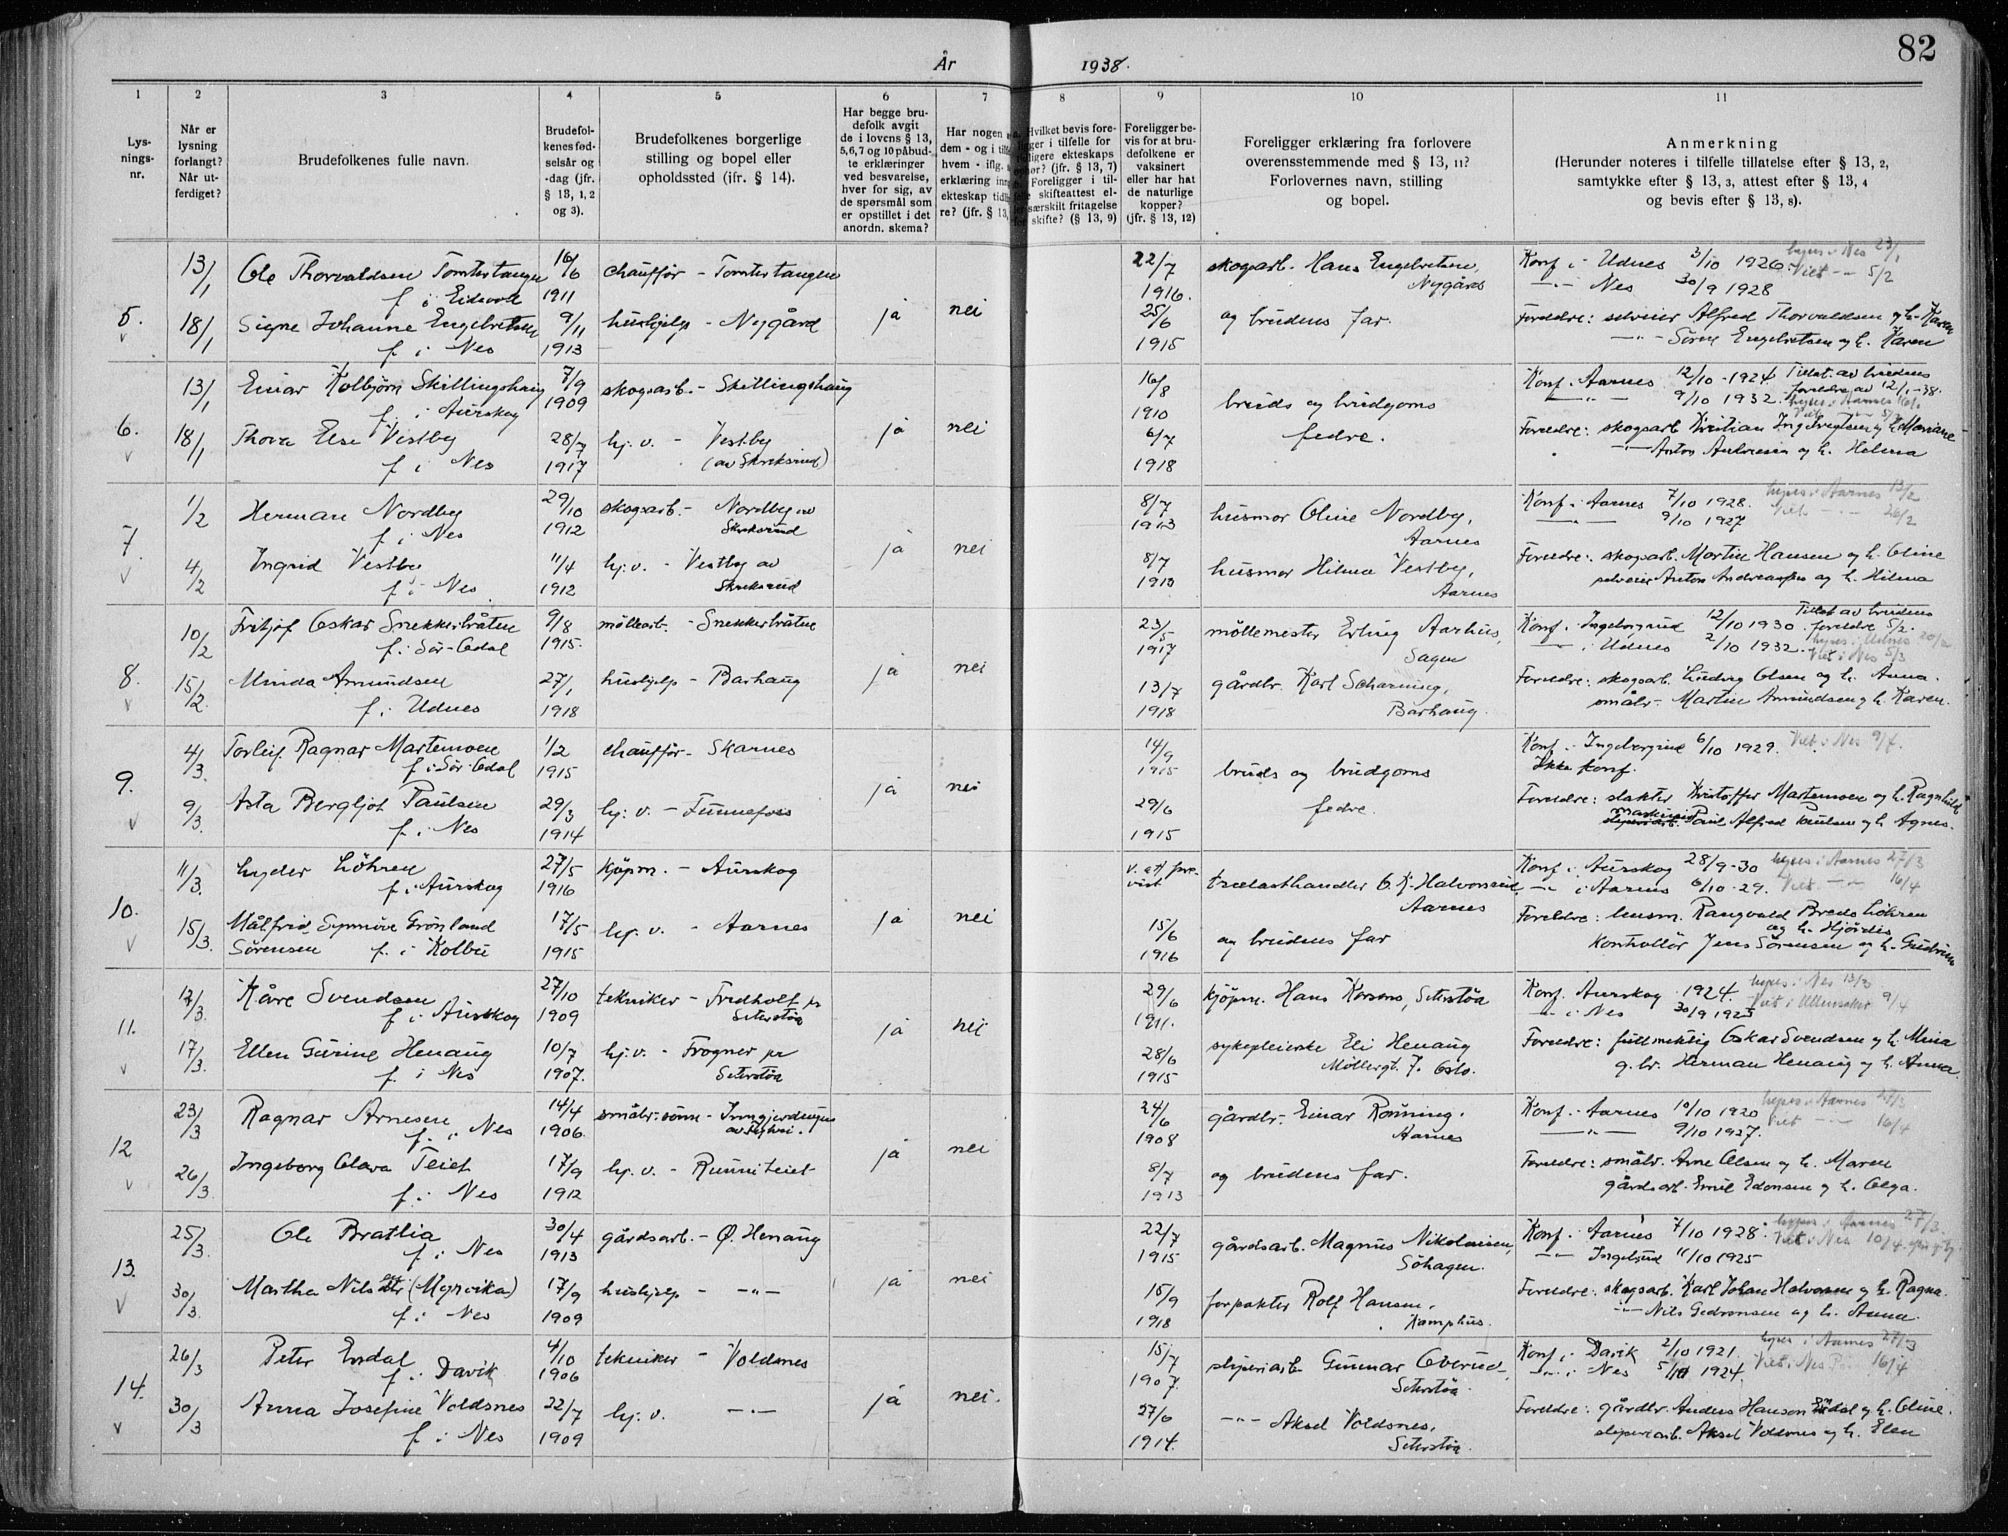 82
År 1938.
1 2 3 4 5 6 7 8 9 10 11
Lysningsnr.
Når er lysning forlangt? Når utferdiget?
Brudefolkenes fulle navn.
Brudefolkenes fødselsår og -dag (jfr. § 13, 1, 2 og 3).
Brudefolkenes borgerlige stilling og bopel eller opholdssted (jfr. § 14).
Har begge brudefolk avgit de i lovens § 13, 5, 6, 7 og 10 påbudte erklæringer ved besvarelse, hver for sig, av de spørsmål som er opstillet i det anordn. skema?
Har nogen
dem - og i
hvem - iflg.
erklæring
ekteskap
re? (jfr. § 13,
Hvilket bevis fore-
i tilfelle for
ekteskaps
? (jfr. § 13, 7)
Foreligger i til-
skifteattest el-
særskilt fritagelse
skifte? (§ 13, 9)
Foreligger bevis for at brudefolkene er vaksinert eller har hat de naturlige kopper? (jfr. § 13, 12)
Foreligger erklæring fra forlovere overensstemmende med § 13, 11? Forlovernes navn, stilling og bopel.
Anmerkning
(Herunder noteres i tilfelle tillatelse efter § 13, 2, samtykke efter § 13, 3, attest efter § 13, 4 og bevis efter § 13, 8).
5. 13/1 Ole Thorvaldsen Tomtertangen 16/6 1911 chauffør - Tomtertangen
f. i Eidsvoll
18/1 Signe Johanne Engebretsen 9/11 1913 hushjelp - Nygård ja nei
f. i Nes
22/7 1916. skogsarb. Hans Engebretsen, Nygård
25/6 1915 og brudens far.
Konf. i Udnes 3/10 1926. lyses i Nes 23/1
-"- Nes 30/9 1928 Viet -"- 5/2
Foreldre: selveier Alfred Thorvaldsen og h. Karen
-"- Søren Engebretsen og h. Karen
6. 13/1 Einar Kolbjørn Skillingshaug 7/9 1909 skogsarb. - Skillingshaug
f. i Aurskog
18/1 Thora Else Vestby 28/7 1917 hj. v. - Vestby (av Skreksrud) ja nei
f. i Nes
16/8 1910 bruds og brudgoms
6/7 1918 fedre.
Konf. Aarnes 12/10 - 1924 Tillat. av brudens foreldre av 12/1-38.
-"- 9/10 1932.
Foreldre: skogsarb. Kristian Ingebregtsen og h. Mariane
-"- Anton Andreasen og h. Helma
7. 1/2 Herman Nordby 29/10 1912 skogsarb. - Nordby av Skreksrud
f. i Nes
4/2 Ingrid Vestby 11/4 1912 hj. v. - Vestby av Skreksrud ja nei
f. i Nes
8/7 1913 husmor Oline Nordby, Aarnes
8/7 1913 husmor Hilma Vestby, Aarnes
Konf. i Aarnes 7/10 1928. lyses i Aarnes 13/2
-"- 9/10 1927 Viet -"- 26/2
Foreldre: skogsarb. Martin Hansen og h. Oline
selveier Anton Andreassen og h. Hilma
8. 10/2 Fritjof Oskar Snekkerbråten 9/8 1915. møllearb. - Snekkerbråten
f. i Sør-Odal
15/2. Minda Amundsen 27/1 1918 hushjelp - Barhaug ja nei
f. i Udnes
23/5 1917 møllemester Erling Aarhus, Sagen
13/7 1918 gårdbr. Karl Scharning, Barhaug.
Konf. i Ingeborgrud 12/10 1930. Tillat av brudens foreldre 5/2.
-"- i Udnes 2/10 1932. lyses i Udnes 20/2 Viet i Nes 5/3
Foreldre: skogsarb. Ludvig Olsen og h. Anna.
småbr. - Martin Amundsen og h. Karen.
9. 4/3. Torleif Ragnar Martemoen 1/2 1915 chauffør - Skarnes
f. i Sør-Odal
9/3. Asta Bergljot Paulsen 29/3 1914 hj. v. - Funnefoss ja nei
f. i Nes
14/9 1915 bruds og brudgoms
29/6 1915 fedre.
Konf. i Ingeborgrud 6/10 1929. Viet i Nes 9/4.
Ikke konf.
Foreldre: slakter Kristoffer Martemoen og h. Ragnhild
maskinist Paul Alfred Paulsen og h. Agnes.
10. 11/3. Lyder Løhren 27/5 1916 kjøpm. - Aurskog
f. i Aurskog
15/3. Målfrid Synnøve Grønland Sørensen 17/5 1915 hj. v. - Aarnes ja nei
f. i Kolbu
v. att. forevist trælasthandler O. K. Halvorsrud, Aarnes
15/6 1916 og brudens far
Konf. i Aurskog 28/9-30 lyses i Aarnes 27/3
-"- i Aarnes 6/10-29. Viet -"- 16/4
Foreldre: lensm. Rangvald Brede Løhren og h. Hjørdis
kontrollør Jens Sørensen og h. Gudrun
11. 12/3. Kåre Svendsen 27/10 1909 tekniker - Fredholt pr Seterstøa
f. i Aurskog
17/3. Ellen Gurine Henaug 10/7 1907. hj. v. - Frogner pr Seterstøa ja nei
f. i Nes
29/6 1911. kjøpm. Hans Karsens, Seterstøa
28/6 1915 sykepleierske Eli Henaug Møllergt. 7. Oslo.
Konf. Aurskog 1924. lyses i Nes 13/3
-"- i Nes 30/9 1923 Viet i Ullensaker 9/4
Foreldre: fullmektig Oskar Svendsen og h. Mina
g.br. Herman Henaug og h. Anna.
12 23/3 Ragnar Arnesen 14/4 1906. småbr. sønn -
f. i Nes
26/3 Ingeborg Olava Teiet 17/9 1912 hj. v. - Runniteiet ja nei
f. i Nes
24/6 1908 gårdbr. Einar Rønning. Aarnes
8/7 1913 og brudens far.
Konf. i Aarnes 10/10 1920 lyses i Aarnes 27/3
-"- 9/10 1927. Viet -"- 16/4
Foreldre: småbr. Arne Olsen og h. Maren
gårdsarb. Emil Edonsen og h. Olga.
13. 25/3. Ole Bratlia 30/4 1913 gårdsarb. - Ø. Henaug
f. i Nes
30/3. Martha Nilsdtr (Myrvika) 17/9 1909 hushjelp -"- ja nei
f. i Nes
22/7 1915 gårdsarb. Magnus Nikolaisen, Søhagen.
15/9 1918 forpakter Rolf Hansen, Kamphus.
Konf. i Aarnes 7/10 1928. lyses i Aarnes 27/3
-"- Ingebjrud 11/10 1925 Viet i Nes 10/4
Foreldre: skogsarb. Karl Johan Halvorsen og h. Ragna.
-"- Nils Gedionsen og h. Anna.
14. 26/3 Peter Endal 4/10 1906 tekniker - Voldsnes
f. i Davik
30/3 Anna Josefine Voldsnes 22/7 1909 hj. v. -"- ja nei.
f. i Nes
15/7 1907. sliperiarb. Gunnar Overud, Seterstøa.
27/6 1914. -"- Aksel Voldsnes, Seterstøa.
Konf. i Davik 2/10 1921. lyses i Aarnes 27/3
-"- i Nes 5/10 1924. Viet i Nes 16/4
Foreldre: gårdbr. Anders Hanson Endal og h. Oline.
sliperiarb. Aksel Voldsnes og h. Elen